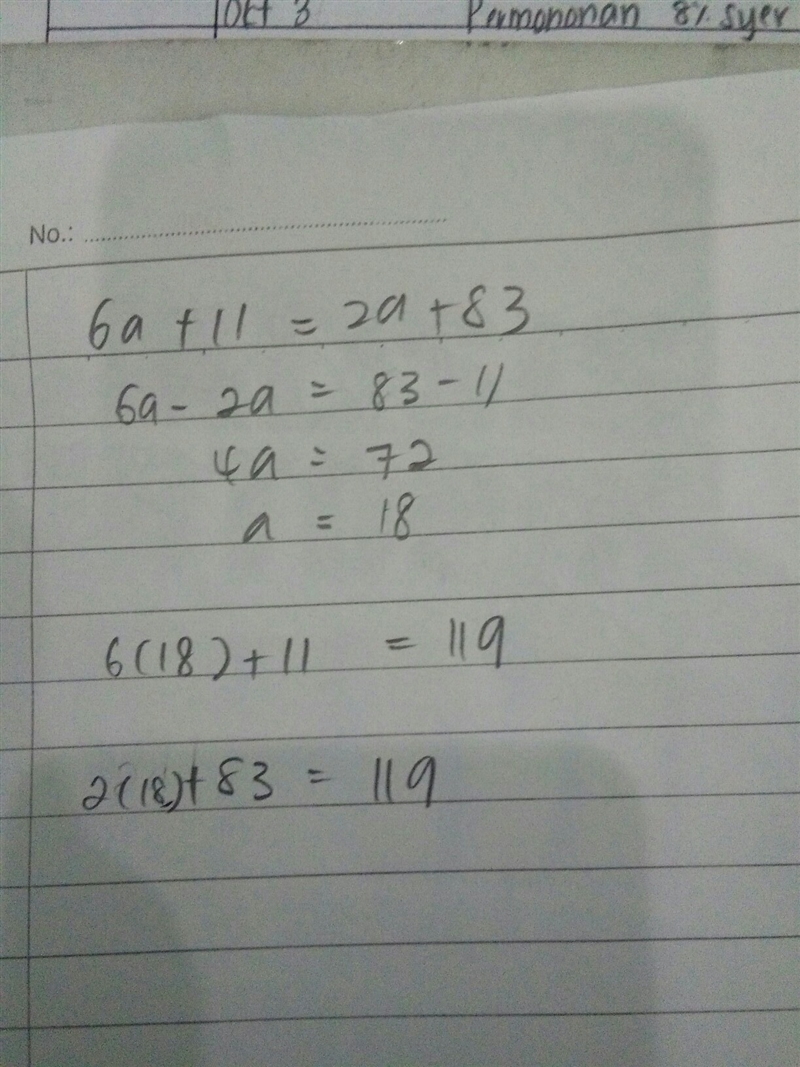 Oct 3 Permohonan 8% syer
No.:
6a + 11 = 2a + 83
6a - 2a = 83 - 11
4a = 72
a = 18
6(18) + 11 = 119
2(18) + 83 = 119